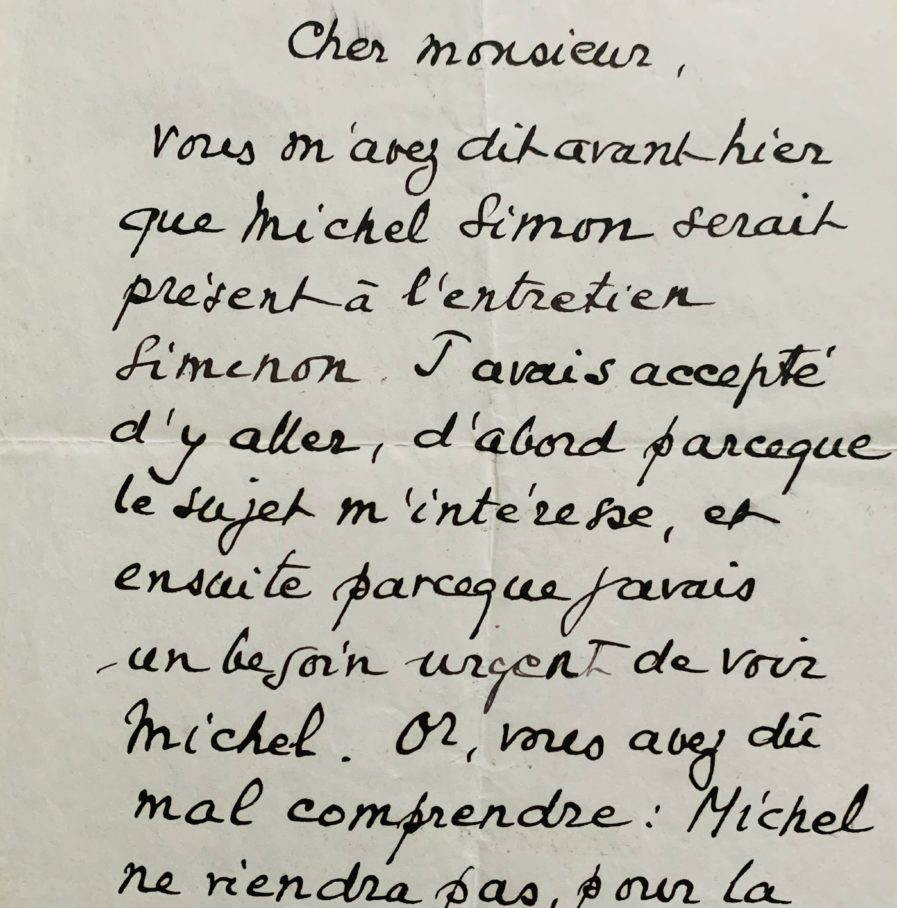 Cher monsieur,
vous m'avez dit avant hier
que Michel Simon serait
présent à l'entretien
Simenon. J'avais accepté
d'y aller, d'abord parceque
le sujet m'intéresse, et
ensuite parceque j'avais
un besoin urgent de voir
Michel. Or, vous avez dû
mal comprendre : Michel
ne viendra pas, pour la